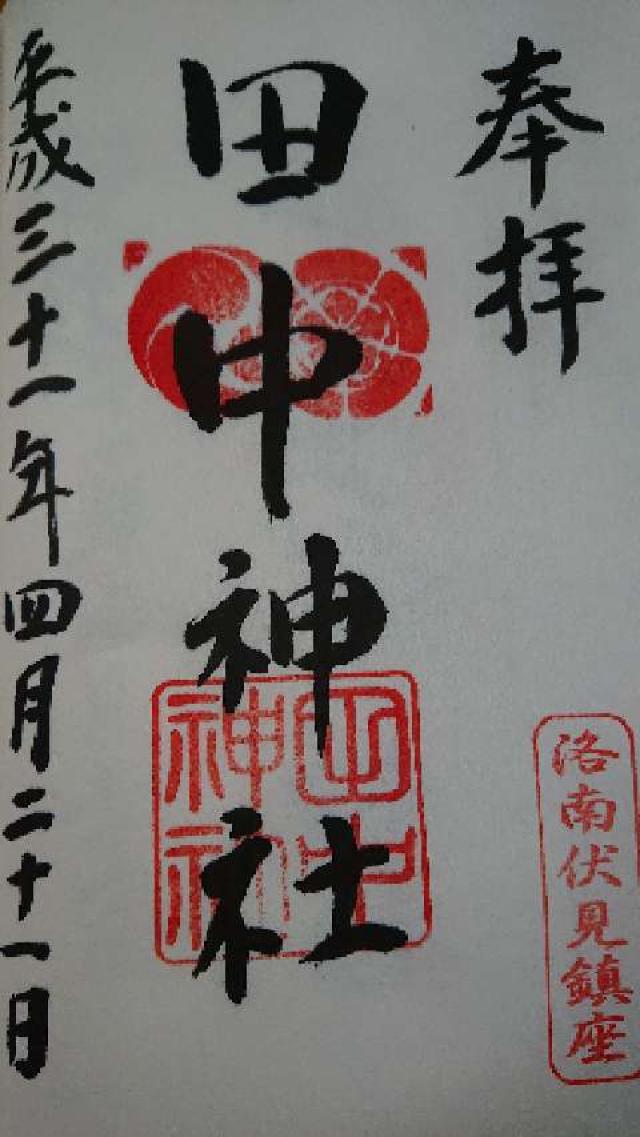 奉拝
洛南伏見鎮座
田中神社
田中神社
平成三十一年四月二十一日